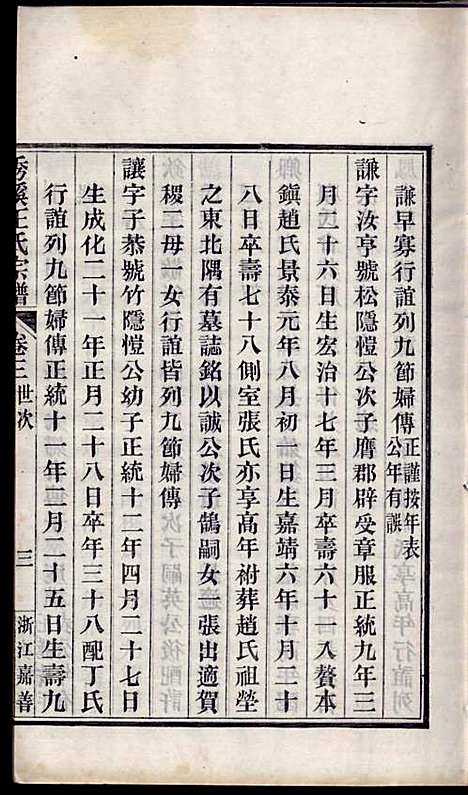 謙早寡行誼列九節婦傳正謹按年表
公年有誤
謙字汝亨號松隱愷公次子膺郡辟受章服正統九年三
月二十六日生宏治十七年三月卒壽六十一入贅本
鎮趙氏景泰元年八月初一日生嘉靖六年十月二十
八日卒壽七十八側室張氏亦享高年祔葬趙氏祖塋
之東北隅有墓誌銘以誠公次子鵠嗣女一張出適賀
稷二毋一女行誼皆列九節婦傳
讓字子恭號竹隱愷公幼子正統十二年四月二十七日
生成化二十一年正月二十八日卒年三十八配丁氏
行誼列九節婦傳正統十一年二月二十五日生壽九
秀溪王氏宗譜
卷三世次
三
浙江嘉善